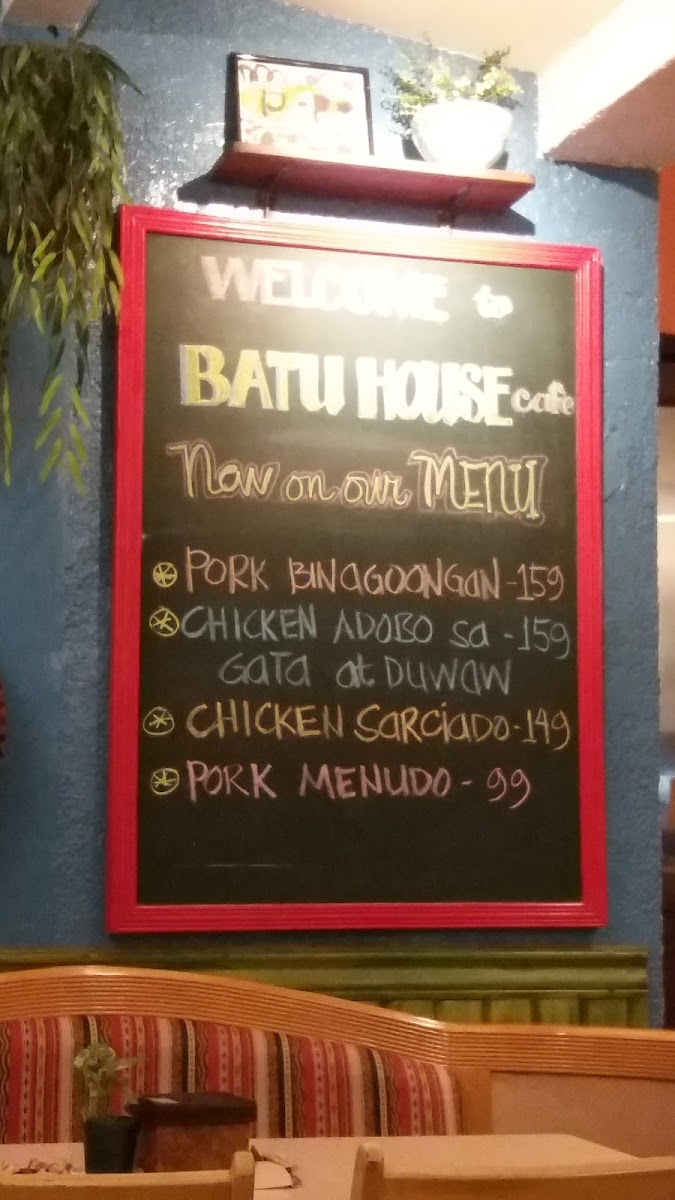 WELCOME to
BATU HOUSE cafe
Now on our MENU
PORK BINAGOONGAN - 159
CHICKEN ADOBO sa - 159
GATA at DUWAW
CHICKEN SARCIADO - 149
PORK MENUDO - 99